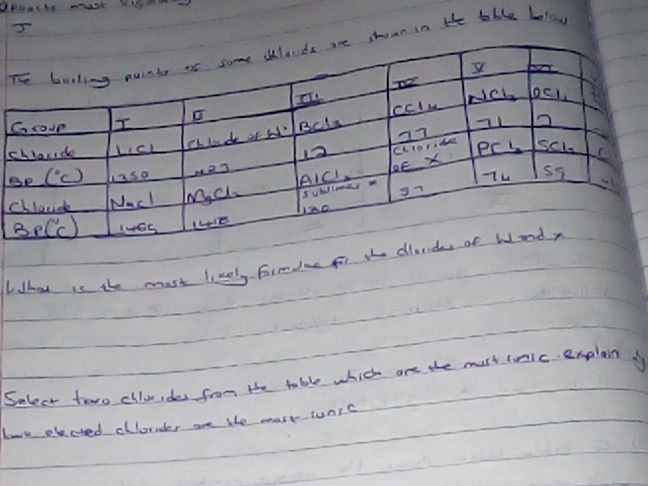 must
The boiling points of some chlorides are shown in the table below
Group I II III IV V VI
Chloride LiCl Chloride of W BCl3 CCl4 NCl3 OCl2
BP (°C) 1350 487 12 77 71 2
Chloride NaCl MgCl2 AlCl3 Chloride of X PCl3 SCl2
BP(°C) 1465 1418 sublimes 180 57 74 59
What is the most likely formulae for the chlorides of W and X
Select two chlorides from the table which are the most ionic. explain why
two elected chlorides are the most ionic